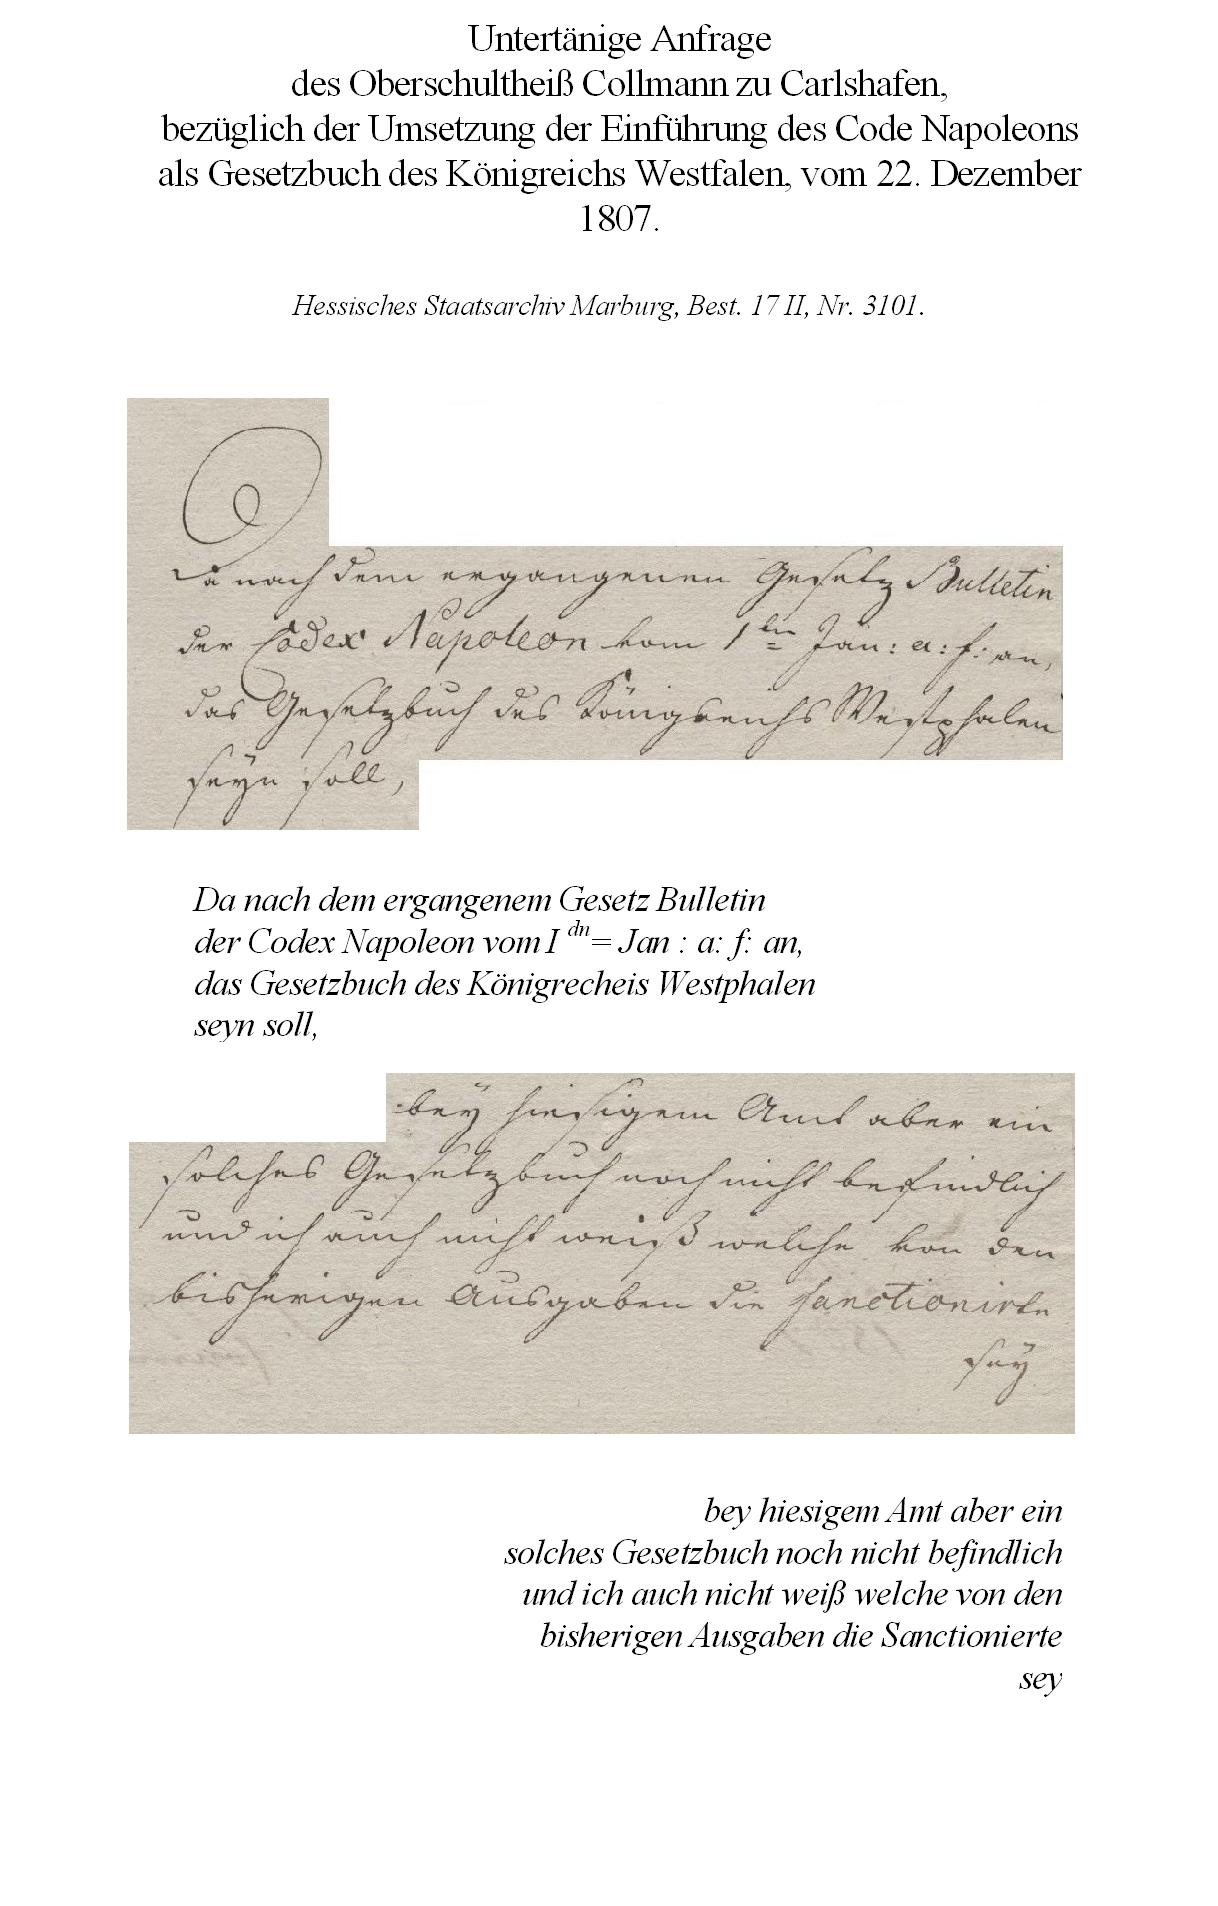 Untertänige Anfrage
des Oberschultheiß Collmann zu Carlshafen,
bezüglich der Umsetzung der Einführung des Code Napoleons
als Gesetzbuch des Königreichs Westfalen, vom 22. Dezember
1807.
Hessisches Staatsarchiv Marburg, Best. 17 II, Nr. 3101.
Da nach dem ergangenen Gesetz Bulletin
der Codex Napoleon vom 1ten Jan: a: f: an,
das Gesetzbuch des Königreichs Westphalen
seyn soll,
Da nach dem ergangenem Gesetz Bulletin
der Codex Napoleon vom I dn= Jan : a: f: an,
das Gesetzbuch des Königrecheis Westphalen
seyn soll,
bey hiesigem Amt aber ein
solches Gesetzbuch noch nicht befindlich
und ich auch nicht weiß welche von den
bisherigen Ausgaben die sanctionirte
sey
bey hiesigem Amt aber ein
solches Gesetzbuch noch nicht befindlich
und ich auch nicht weiß welche von den
bisherigen Ausgaben die Sanctionierte
sey